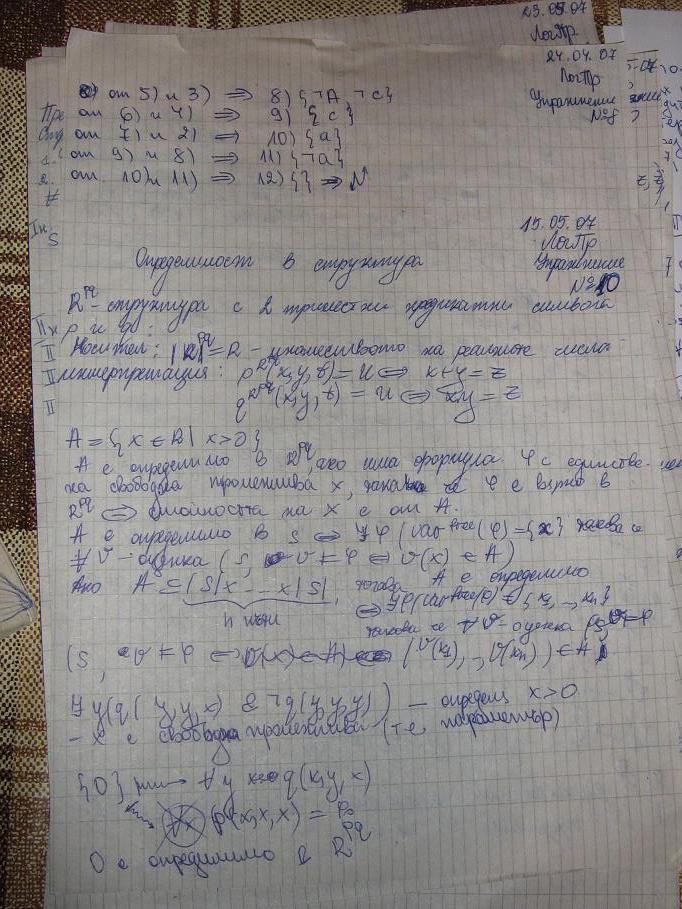 23.05.07
ЛогПр
24.04.07
ЛогПр
Упражнение
№8
от 5) и 3) ⇒ 8) {¬A, ¬c}
от 6) и 4) ⇒ 9) {c}
от 7) и 2) ⇒ 10) {a}
от 9) и 8) ⇒ 11) {¬a}
от 10) и 11) ⇒ 12) {} ⇒ N
15.05.07
ЛогПр
Определимост в структура Упражнение
№10
R^pq - структура с 2 триместни предикатни символа
p и q:
Носител: |R|^pq = R - множеството на реалните числа
интерпретация: p^R^pq(x,y,z) = И ⇔ x+y=z
q^R^pq(x,y,z) = И ⇔ xy=z
A = {x ∈ R | x>0}
A е определимо в R^pq, ако има формула φ с единстве-
на свободна променлива x, така че φ е вярно в
R^pq ⇔ стойността на x е от A.
A е определимо в S ⇔ ∃φ (Var^free(φ) = {x} такова че
∀ v - оценка (S, v ⊨ φ ⇔ v(x) ∈ A)
Ако A ⊆ |S| x ... x |S|, тогава A е определимо
n пъти
⇔ ∃φ(Var^free(φ) = {x1, ..., xn}
такова че ∀ v - оценка
(S, v ⊨ φ ⇔ (v(x1), .., v(xn)) ∈ A
∃y(q(y,y,x) & ¬q(y,y,y)) — определя x>0
- x е свободна променлива (т.е. параметър)
{0} ∀y q(x,y,x)
p(x,x,x) =
0 е определимо в R^pq